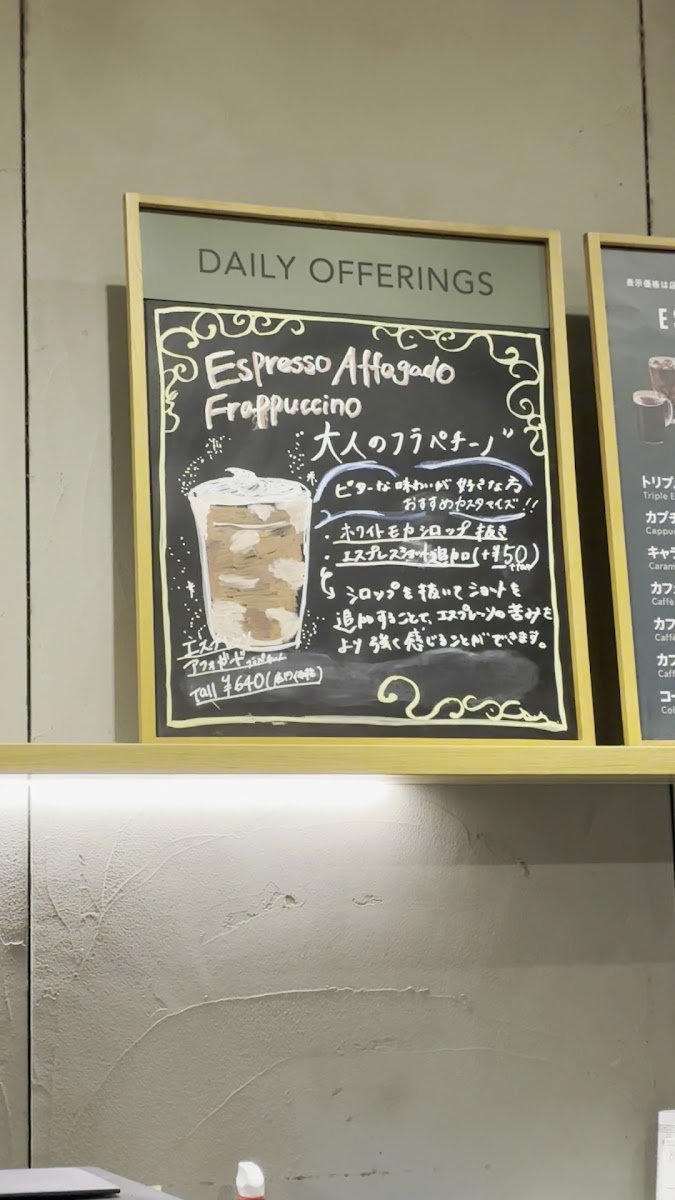 DAILY OFFERINGS
Espresso Affogado
Frappuccino
"大人のフラペチーノ"
ビターな味わいが好きな方
おすすめカスタマイズ!!
・ホワイトモカシロップ抜き
・エスプレッソショット追加(+¥50)
シロップを抜いてショットを
追加することで、エスプレッソの苦みを
より強く感じることができます。
エスプレッソ
アフォガード
Tall ¥640(店内価格)
表示価格は店
ES
トリプル
Triple E
カプチ
Cappuc
キャラ
Caram
カフェ
Caffè
カフ
Caffè
カフ
Caff
コー
Col